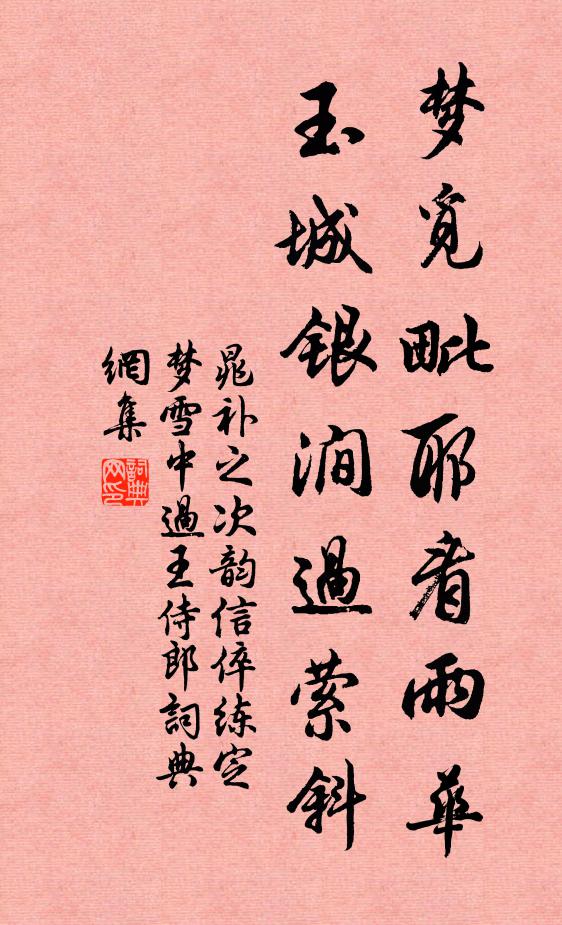 梦觅毗耶看雨华
玉城银涧过萦斜
晁补之次韵信倅练定
梦雪中過王侍郎詞典
網集
詞典网印